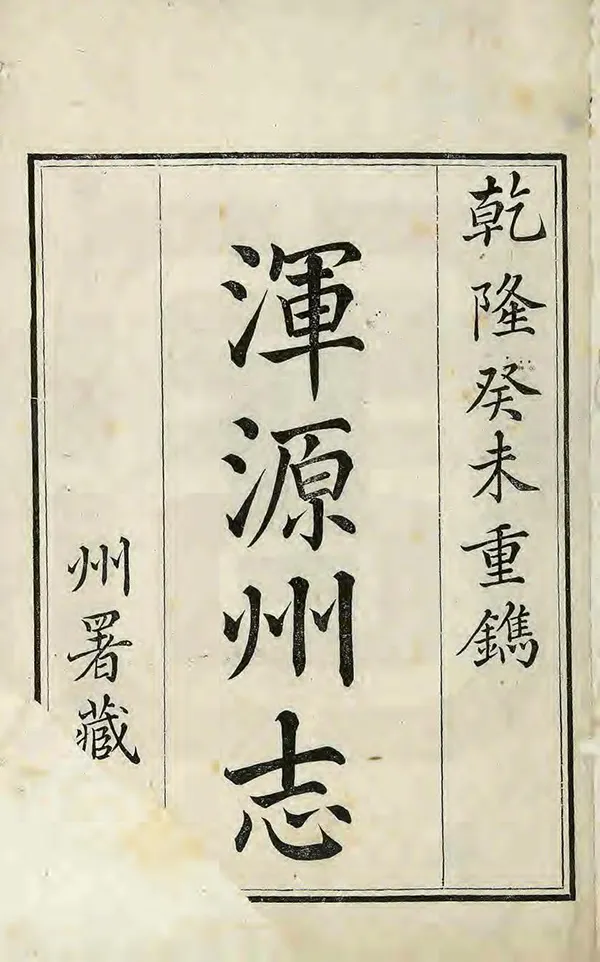 乾隆癸未重鐫
渾源州志
州署藏